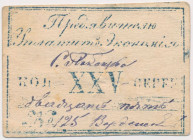 Предъявителю
Уплатитъ Экономія
КОП XXV СЕРЕБ
двадцать пять
№ 125